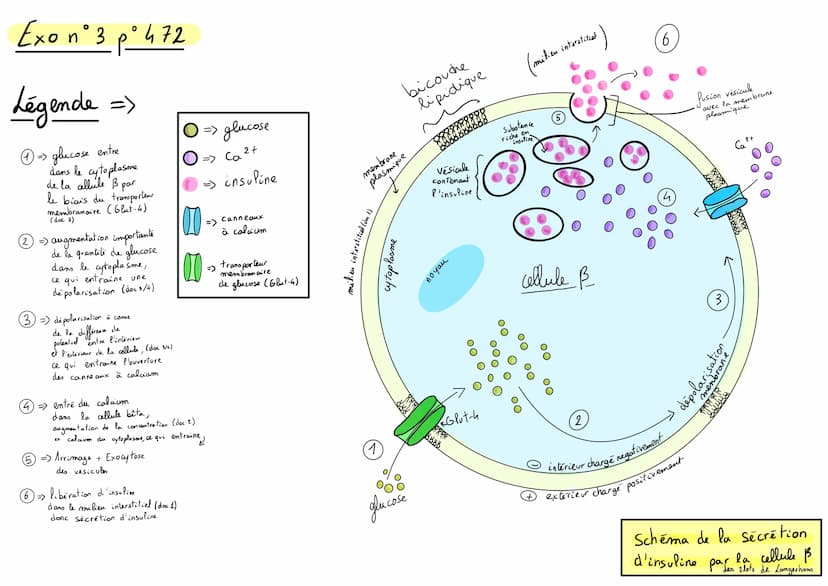 Exo n°3 p°472
Légende =>
① => glucose entre
dans le cytoplasme
de la cellule β par
le biais du transporteur
membranaire (Glut-4)
(doc 3)
② => augmentation importante
de la quantité du glucose
dans le cytoplasme,
ce qui entraine une
dépolarisation (doc 3/4)
③ => dépolarisation à cause
de la différence de
potentiel entre l'intérieur
et l'extérieur de la cellule,
ce qui entraine l'ouverture
des canneaux à calcium
④ => entré du calcium
dans la cellule bêta,
augmentation de la concentration
en calcium du cytoplasme, ce qui entraine
⑤ => Arrimage + Exocytose
des vésicules
⑥ => libération d'insuline
dans le milieu interstitiel (doc 1)
donc sécrétion d'insuline
=> glucose
=> Ca2+
=> insuline
=> canneaux
à calcium
=> transporteur
membranaire
de glucose (Glut-4)
bicouche
lipidique
(milieu interstitiel)
⑥
fusion vésicule
avec la membrane
plasmique
membrane
plasmique
⑤
Substance
riche en
insuline
Vésicule
contenant
l'insuline
Ca2+
④
milieu interstitiel
cytoplasme
noyau
cellule β
③
dépolarisation
membrane
Glut-4
①
glucose
②
- intérieur chargé négativement
+ extérieur chargé positivement
Schéma de la sécrétion
d'insuline par la cellule β
des îlots de Langerhans